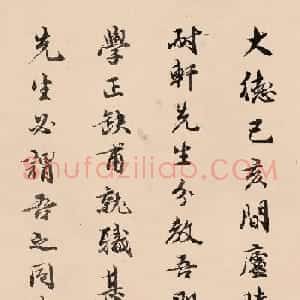 大德己亥間廬陵
耐軒先生分教吾
學正缺甫就職其
先生必謂吾之同
Shufaziliao.com